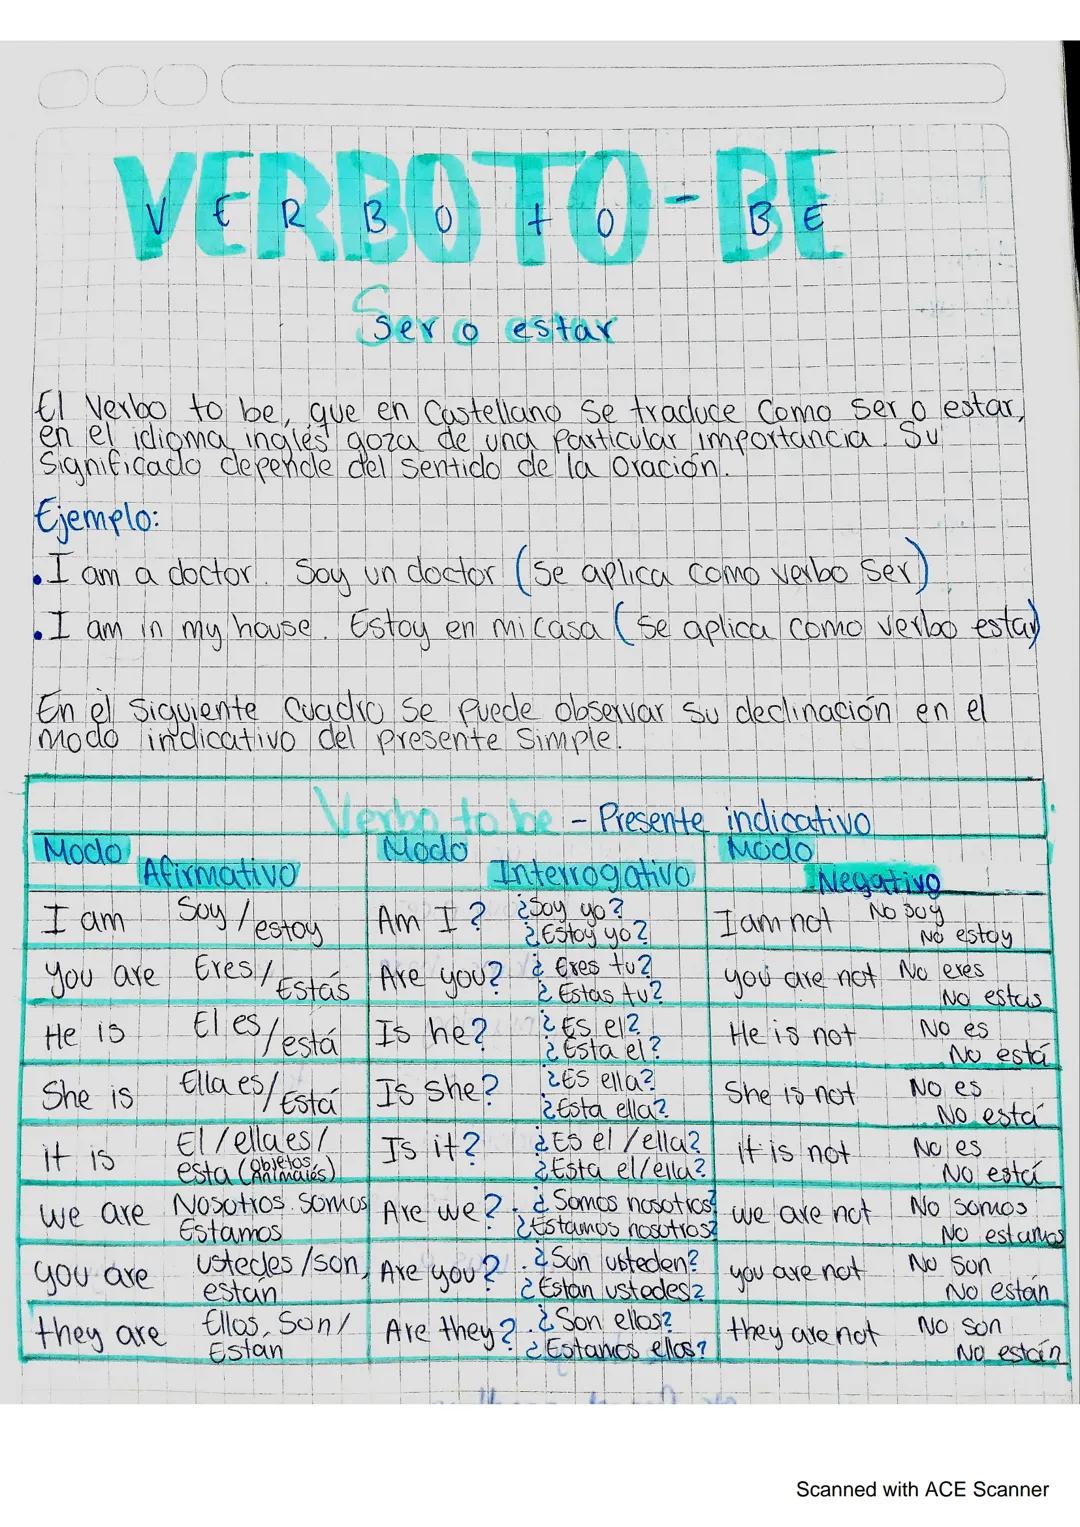 VERBO TO-BE
VERBO tO BE
Ser o estar
El Verbo to be, que en Castellano Se traduce Como Ser o estar,
en el idioma inglés goza de una particular importancia. Su
Significado depende del Sentido de la Oración.
Ejemplo:
•I am a doctor. Soy un doctor (Se aplica como verbo Ser)
•I am in my house. Estoy en mi casa (Se aplica como verbo estar)
En el Siguiente Cuadro Se puede observar Su declinación en el
Modo indicativo del presente Simple.
Verbo to be - Presente indicativo
Modo Afirmativo Modo Interrogativo Modo Negativo
I am Soy / estoy Am I? ¿Soy yo? ¿Estoy yo? I am not No soy No estoy
you are Eres / Estás Are you? ¿Eres tu? ¿Estas tu? you are not No eres No estas
He is El es / está Is he? ¿Es el? ¿Esta el? He is not No es No está
She is Ella es / Está Is She? ¿Es ella? ¿Esta ella? She is not No es No está
it is El / ella es / esta (objetos, Animales) Is it? ¿Es el / ella? ¿Esta el/ella? it is not No es No está
we are Nosotros. Somos Estamos Are we? ¿Somos nosotros? ¿Estamos nosotros? we are not No somos No estamos
you are ustedes / son, están Are you? ¿Son ubteden? ¿Estan ustedes? you are not No Son No están
they are Ellos, Son / Están Are they? ¿Son ellos? ¿Estamos ellos? they are not No son No están
Scanned with ACE Scanner